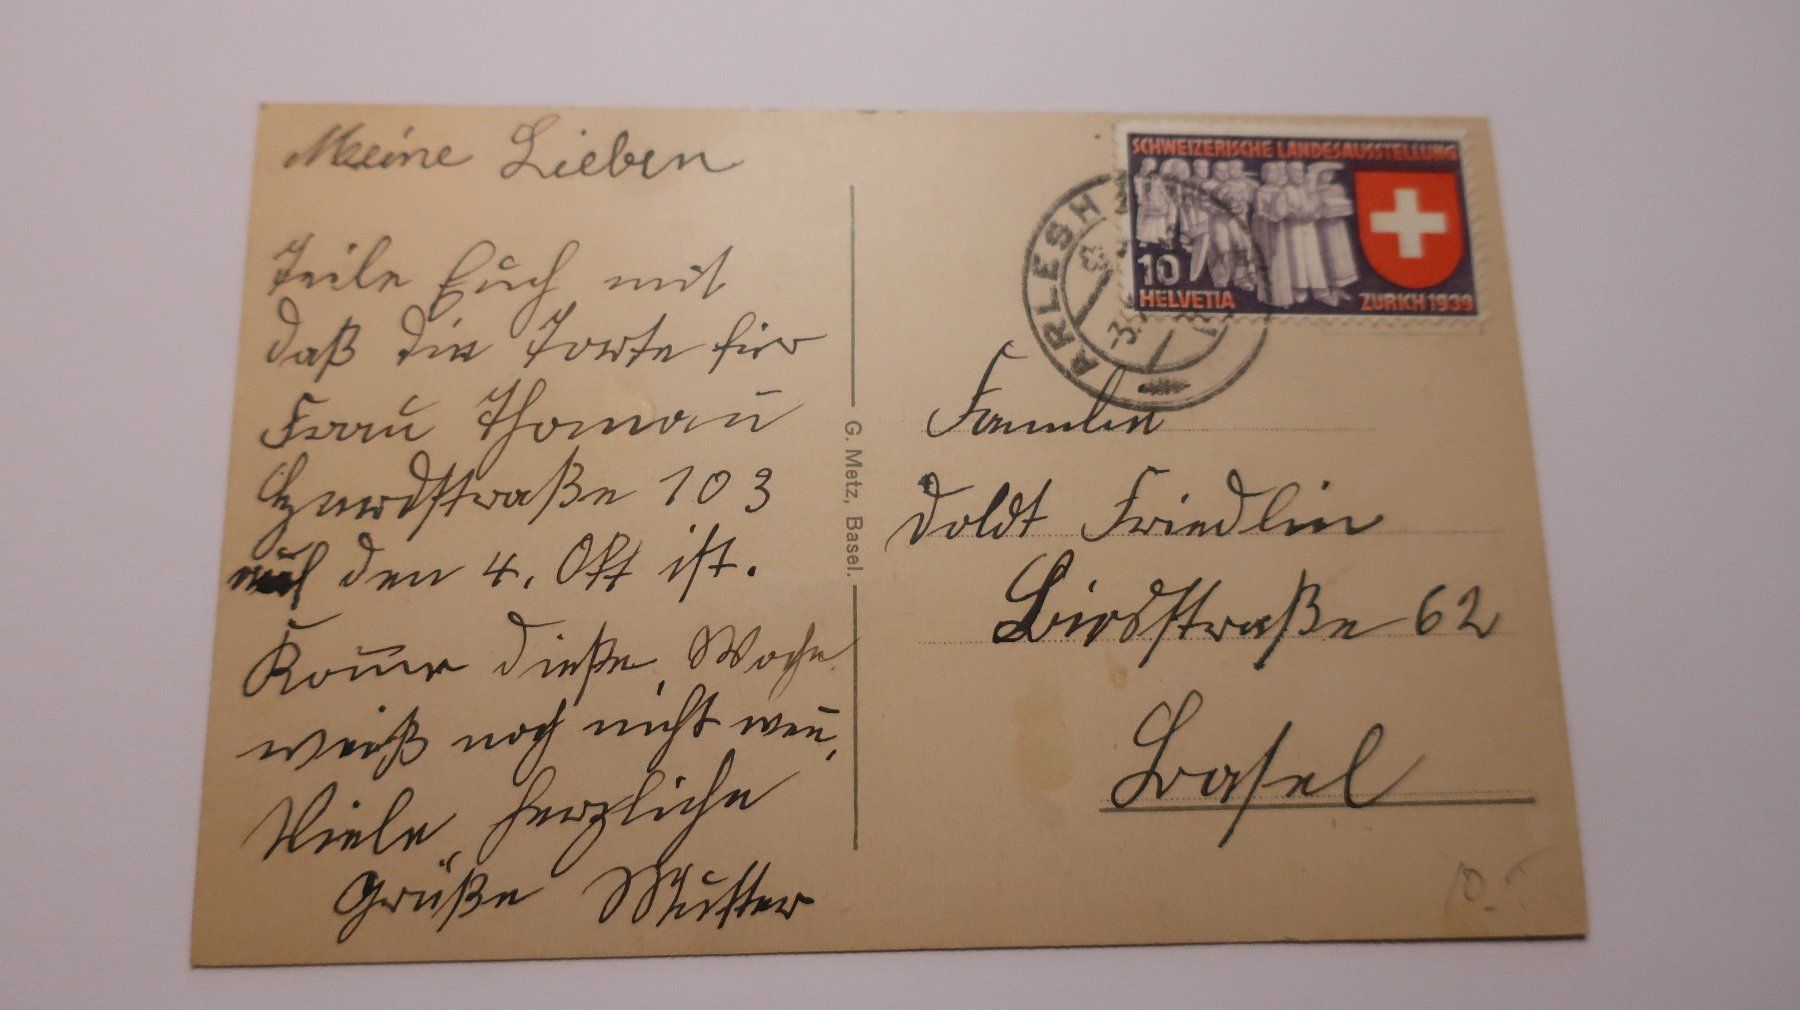 Meine Lieben
Teile Euch mit
daß die Torte für
Frau Thomau
straße 103
auf den 4. Okt ist.
Kom̅e dieße Woche
weiß noch nicht wen̅,
Viele herzliche
Grüße Mutter
G. Metz, Basel.
SCHWEIZERISCHE LANDESAUSSTELLUNG
10
HELVETIA
ZÜRICH 1939
ARLESH
Familie
Doldt Friedlin
Birsstraße 62
Basel
10.-